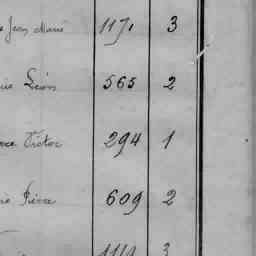 Jean Marie 1171 3
Léon 565 2
Victor 294 1
Pierre 609 2
1119 3